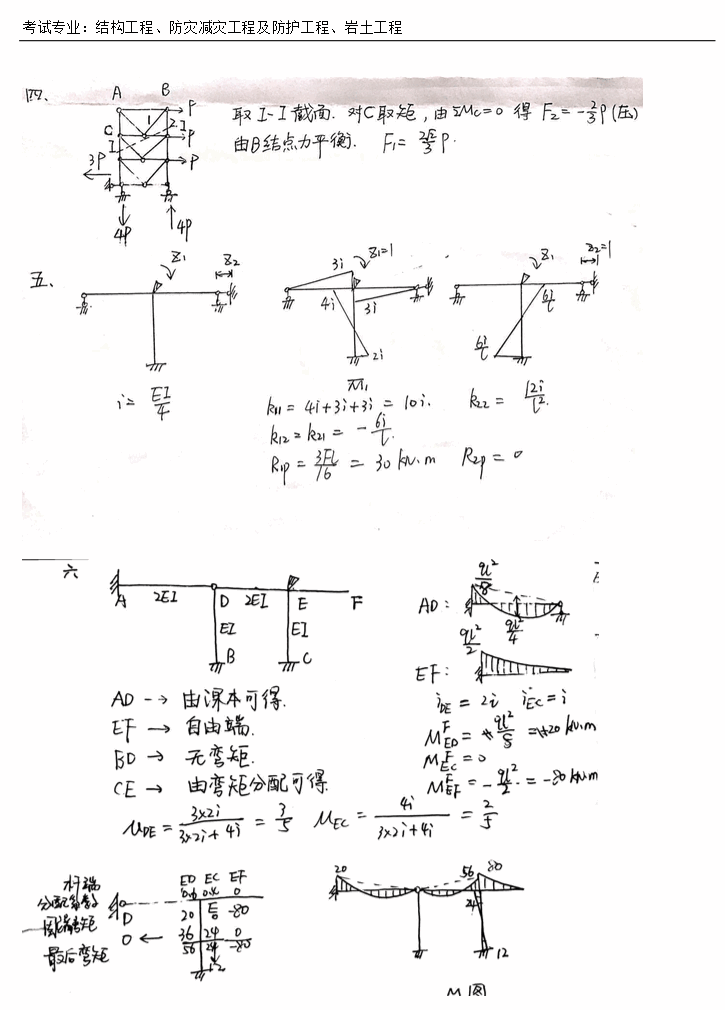 考试专业：结构工程、防灾减灾工程及防护工程、岩土工程
四、
A B
P
1 2 I
C P
I
3P P
4P 4P
取I-I截面. 对C取矩，由ΣMc=0 得 F₂=-⅔P(压)
由B结点力平衡.
五、
Z₁ Z₂
3i Z₁=1
4i 3i
2i
M̄₁
Z₁ Z₂=1
6i/l
6i/l
i= EI/4
k₁₁= 4i+3i+3i = 10i.
k₂₂= 12i/l².
k₁₂=k₂₁= -6i/l.
R₁p= 3Fl/16 = 30 kN.m R₂p=0
六
A 2EI D 2EI E F
EI EI
B C
AD: ql²/8
ql²/4
EF: ql²/2
AD --→ 由课本可得.
EF → 自由端.
BD → 无弯矩.
CE → 由弯矩分配可得.
i_DE = 2i i_EC = i
M^F_ED = ql²/8 = +20 kN.m
M^F_EC = 0
M^F_EF = -ql²/2 = -80 kN.m
μ_DE = 3×2i/(3×2i+4i) = 3/5 μ_EC = 4i/(3×2i+4i) = 2/5
杆端 ED EC EF
分配系数 0.6 0.4 0
D E
固端弯矩 20 0 -80
0 ← 36 24 0
最后弯矩 56 24 -80
12
20 56 80
24
12
M图